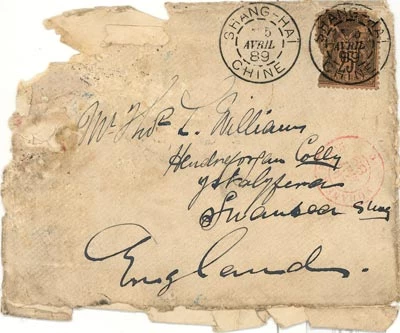 SHANG-HAI
5
AVRIL
89
CHINE
SHANG-HAI
AVRIL
89
Mr Thos L. Williams
Hendreforgan Colly
ystalyfera
Swansea
England.